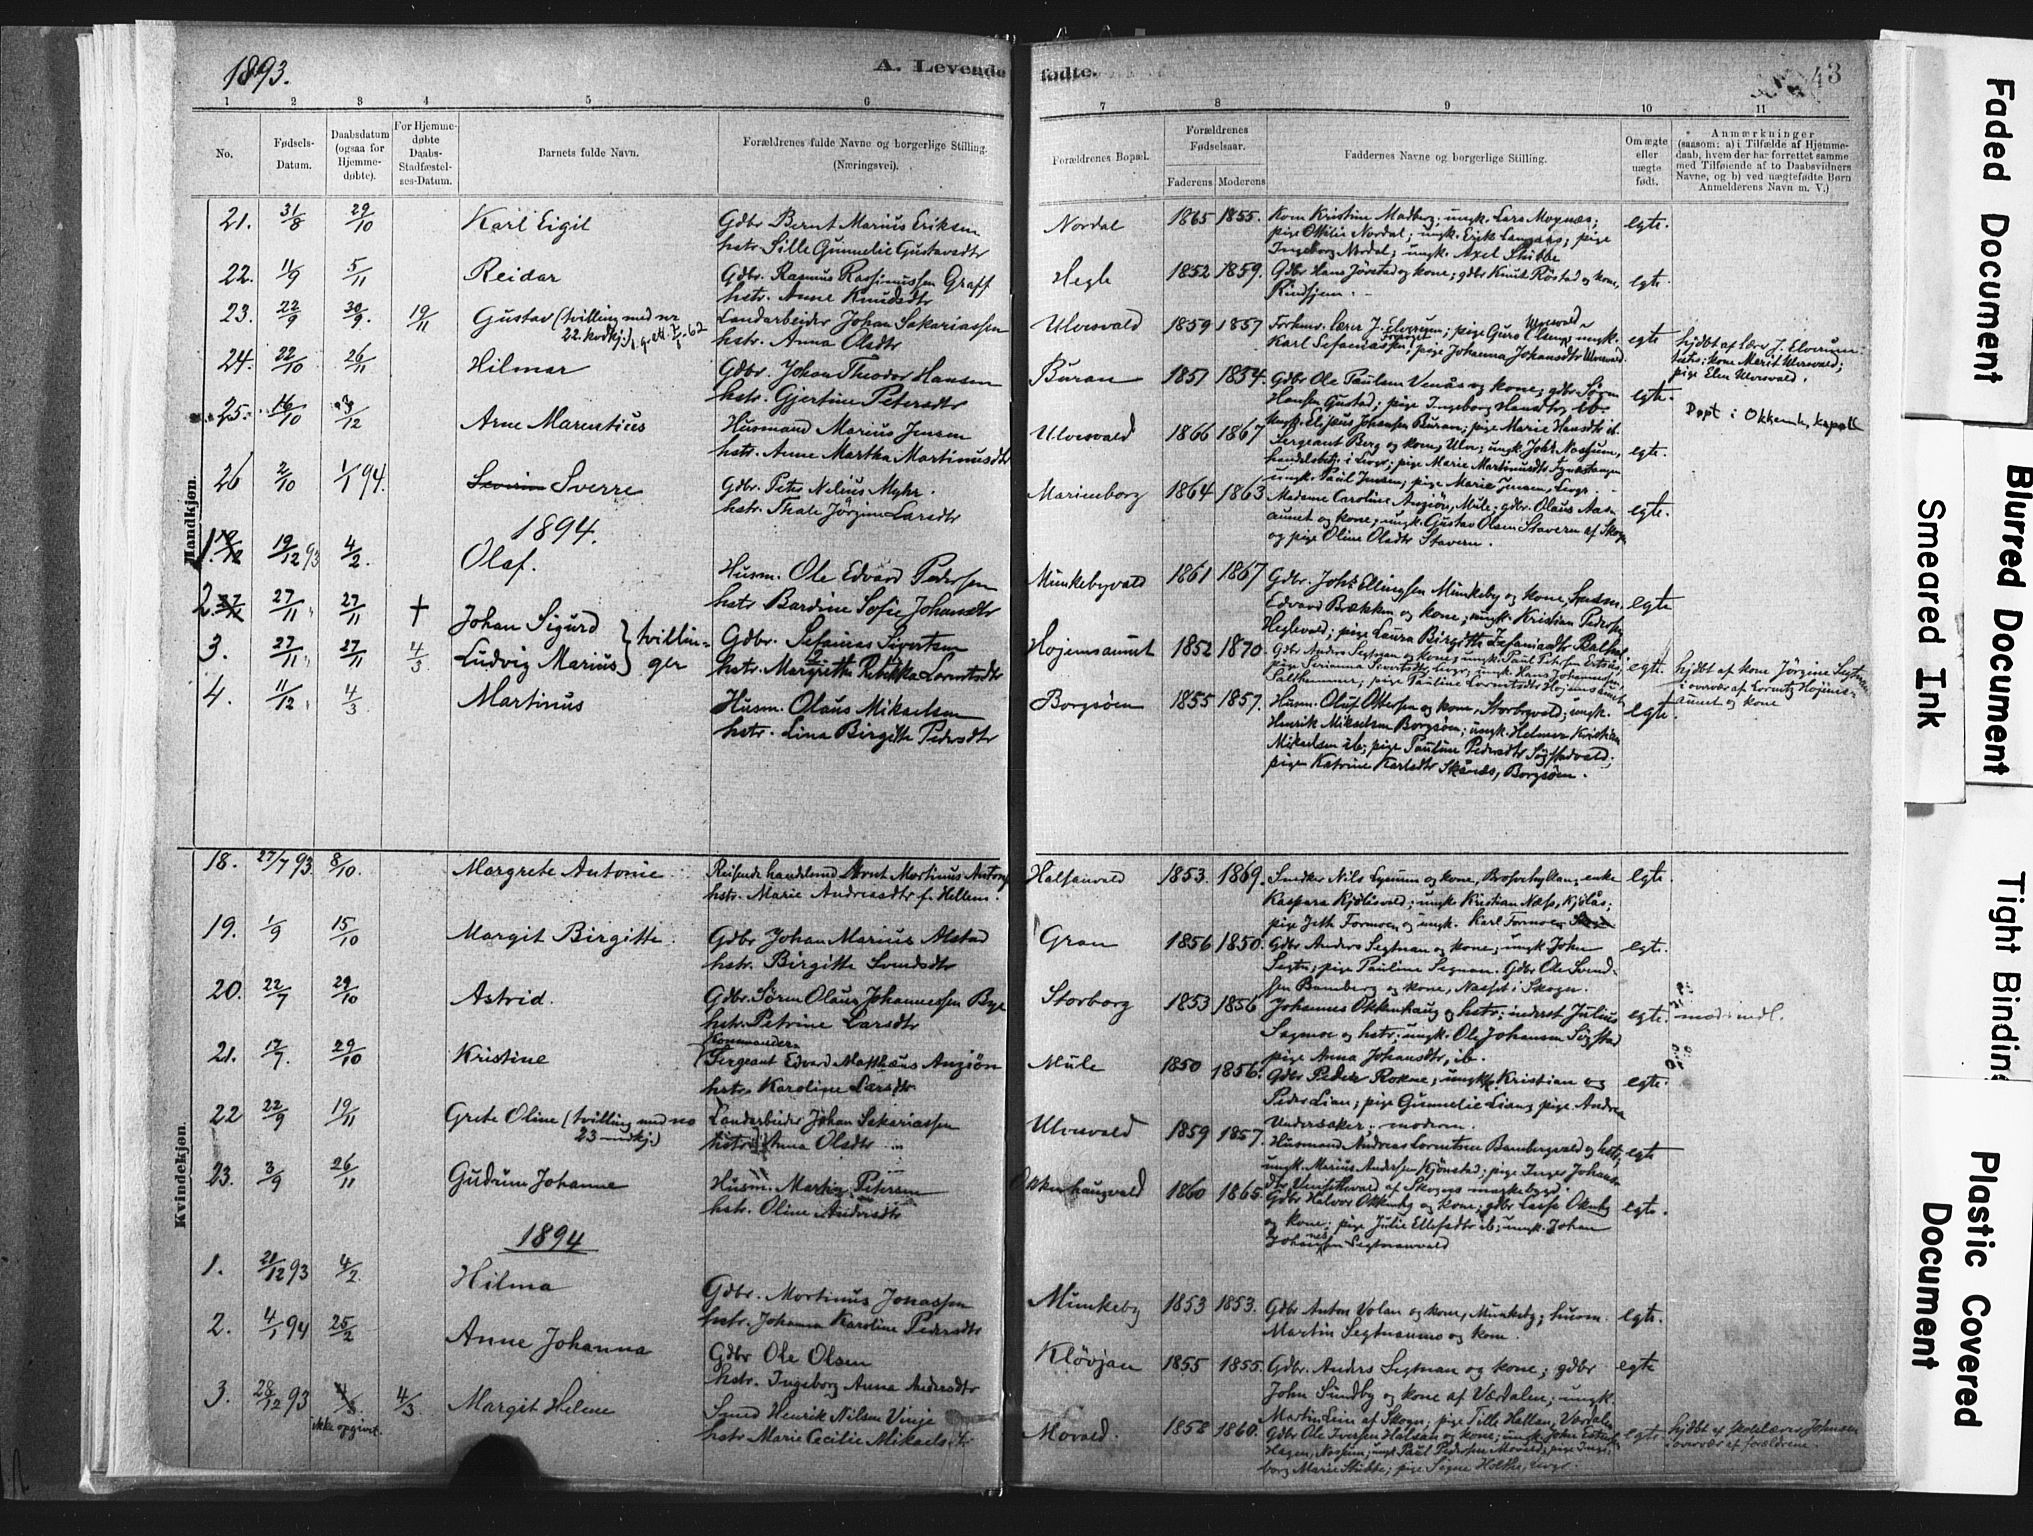 1893.
A. Levende fødte.
43
1 2 3 4 5 6 7 8 9 10 11
No.
Fødsels-
Datum.
Daabsdatum
(ogsaa for
Hjemme-
døbte).
For Hjemme-
døbte
Daabs-
Stadfæstel-
ses-Datum.
Barnets fulde Navn.
Forældrenes fulde Navne og borgerlige Stilling.
(Næringsvei).
Forældrenes Bopæl.
Forældrenes
Fødselsaar.
Faderens Moderens
Faddernes Navne og borgerlige Stilling.
Om ægte
eller
uægte
født.
Anmærkninger
(saasom: a) i Tilfælde af Hjemme-
daab, hvem der har forrettet samme
med Tilføiende af to Daabsvidners
Navne, og b) ved uægtefødte Børn
Anmelderens Navn m. V.)
Mandkjøn.
21. 31/8 29/10 Karl Eigil Gdbr Bernt Marius Eriksen Nordal 1865 1855. Kone Kristine Madberg; ungk. Lars Moynæs; egte.
hstr. Sille Gunnelie Gustavsdtr pige Ottilie Nordal; ungk. Erik ; pige
Ingeborg Nordal; ungk. Axel Stubbe
22. 11/9 5/11 Reidar Gdbr. Rasmus Rasmussen Graff Hegle 1852 1859. Gdbr Hans Jørstad og kone; gdbr Knut Røstad og kone, egte.
hstr. Anne Knudsdtr Rindsjem.
23. 22/9 30/9. 19/11 Gustav (tvilling med nr Landarbeider Johan Sakariassen Ulvesvald 1859 1857 Forhenv. lærer J. Elverum; pige Guro Olsen Ulvesvald ungk. egte hjdbt af lær. J. Elverum
22. kvdkj.) hstr. Anna Olsdtr Karl Sefaniassen; pige Johanna Johansdtr Ulvesvald. test.; kone Marit Ulvesvald;
pige Elen Ulvesvald.
24. 22/10 26/11 Hilmar Gdbr. Johan Theodor Hansen Buran 1857 1854. Gdbr Ole Paulsen Venås og kone; gdbr Søren egte.
hstr. Gjertine Petersdtr Hansen Gustad; pige Ingeborg Hansdtr, ib. Døpt i Okkenh. kapell
ungk. Elifius Johansen Buran; pige Marie Hansdtr ib.
25. 16/10 3/12 Arne Marentius Husmand Marius Jensen Ulvesvald 1866 1867 Sergeant Berg og kone, Ulve; ungk. Johs Nossum, egte.
hstr. Anne Martha Martinusdtr handelsbetj. i Levgr; pige Marie Martinusdtr
ungk. Paul Jensen; pige Marie Jensen, Levgr.
26 2/10 1/1 94. Severin Sverre Gdbr. Peter Nelius Myhr. Marienborg 1864 1863 Madame Caroline Angiøn, Mule; gdbr. Olaus Aas- egte.
hstr. Thale Jørgine Larsdtr aunet og kone; ungk. Gustav Olsen Stavern af Skogn
og pige Oline Olsdtr Stavern.
1894.
1. 19/12 93 4/2. Olaf. Husm. Ole Edvard Pedersen Munkebyvald 1861 1867 Gdbr. Johs Ellingsen Munkeby og kone, husm. egte
hstr Bardine Sofie Johansdtr Edvard Brækken og kone; ungk. Kristian Peders
Heglevald; pige Laura Birgitte Zefaniasdtr
2. 27/11 27/11 † Johan Sigurd } tvillin-
3. 27/11 27/11 4/3 Ludvig Marius } ger Gdbr. Sefanias Sivertsen Højemsaunet 1852 1870. Gdbr Anders Segtnan og kone; ungk. Paul Petersen egte. hjdbt af kone Jørgine Segtnan
hstr. Margrethe Rebekka Lorntsdtr pige Serianna Sivertsdtr, Levgr; ungk. Hans Johannesen i overvær af Lorents Højems-
Salthammer; pige Pauline Lorentsdtr Højemsaunet aunet og kone
4. 11/12 4/3 Martinus Husm. Olaus Mikaelsen Borgsøen 1855 1857. Husm. Oluf Ottersen og kone, Storborgvald; ungk. egte.
hstr. Lina Birgitte Pedersdtr Henrik Mikaelsen Borgsøen; ungk. Helmer Kristian
Mikaelsen ib; pige Pauline Pedersdtr Søgstadvald;
pige Katrine Karlsdtr Skånes, Borgsøen.
Kvindekjøn.
18. 27/7 93 8/10. Margrete Antonie Reisende handelsmd Arnt Martinus Antons Halsanvald 1853. 1869. Snedker Nils Lysum og kone, ; enke egte.
hstr. Marie Andreasdtr f. Hellem. Kaspara Kjølåsvald; ungk Kristian Næss, Kjølås;
pige Jeth Formoen og ungk. Karl Formoen
19. 1/9 15/10 Margit Birgitte. Gdbr Johan Marius Alstad Gran 1856 1850. Gdbr Anders Segtnan og kone; ungk John egte.
hstr. Birgitte Svendsdtr Segtn; pige Pauline Segnan. Gdbr Ole Svend-
sen Bamberg og kone, Nasset i Skogn.
20. 22/7 29/10 Astrid. Gdbr. Søren Olaus Johannessen Bye Storborg 1853 1856 Johannes Okkenhaug og hstr; inderst Julius egte. mod. indl.
hstr. Petrine Larsdtr Sagmoe og hstr; ungk. Ole Johansen Søgstad
pige Anna Johansdtr, ib.
21. 17/7. 29/10 Kristine Kommander-
Sergeant Edvard Matthæus Angiøn Mule 1850 1856. Gdbr Peder Rokne; ungk. Kristian og egte.
hstr Karoline Larsdtr Peder Lian; pige Gunnelie Lian; pige Andrea
Undersaker; moderen.
22 22/9 19/11 Grete Oline (tvilling med no Landarbeider Johan Sakariassen Ulvesvald 1859 1857. Husmand Andreas Lorentsen Bambergvald og hstr, egte
23 mdkj.) hstr. Anna Olsdtr ungk. Marius Andersen Kjønstad; pige Inger Johans-
dtr af Skogn
23. 3/9 26/11 Gudrun Johanne Husm. Martin Petersen Okkenhaugvald 1860 1865. Gdbr Halvor Okkenhg og kone; gdbr Lasse Oknhg egte.
hstr. Oline Andersdtr og kone; pige Julie Ellefsdtr ib; ungk. Johan
Johansen Segtnanvald
1894
1. 21/12 93 4/2. Hilma Gdbr. Martinus Jonassen Munkeby 1853 1853. Gdbr Anton Volan og kone, Munkeby; husm. egte.
hstr. Johanna Karoline Pedersdtr Martin Segtnanmo og kone.
2. 4/1 94 25/2 Anne Johanna Gdbr Ole Olsen Kløvjan 1855 1855 Gdbr. Anders Segtnan og kone; gdbr egte
hstr. Ingeborg Anna Andersdtr John Sundby og kone af Værdalen; ungk.
Martin Lein af Skogn; pige Tille Hallan, Værdalen
3. 28/12 93 4/3 4/3 Margit Helene Smed Henrik Nilsen Vinje Movald. 1858 1860. Gdbr Ole Iversen Halsan og kone; ungk. John egte. hjdbt af skolelærer Johnsen
ikke opgivet. hstr Marie Cecilie Mikaelsdtr Hagen, Nossum; ungk Paul Pedersen Movald; pige Inge- i overvær af forældrene.
borg Marie Stubbe; pige Signe Holthe, Levgr.
Faded Document
Blurred Document
Smeared Ink
Tight Binding
Plastic Covered
Document